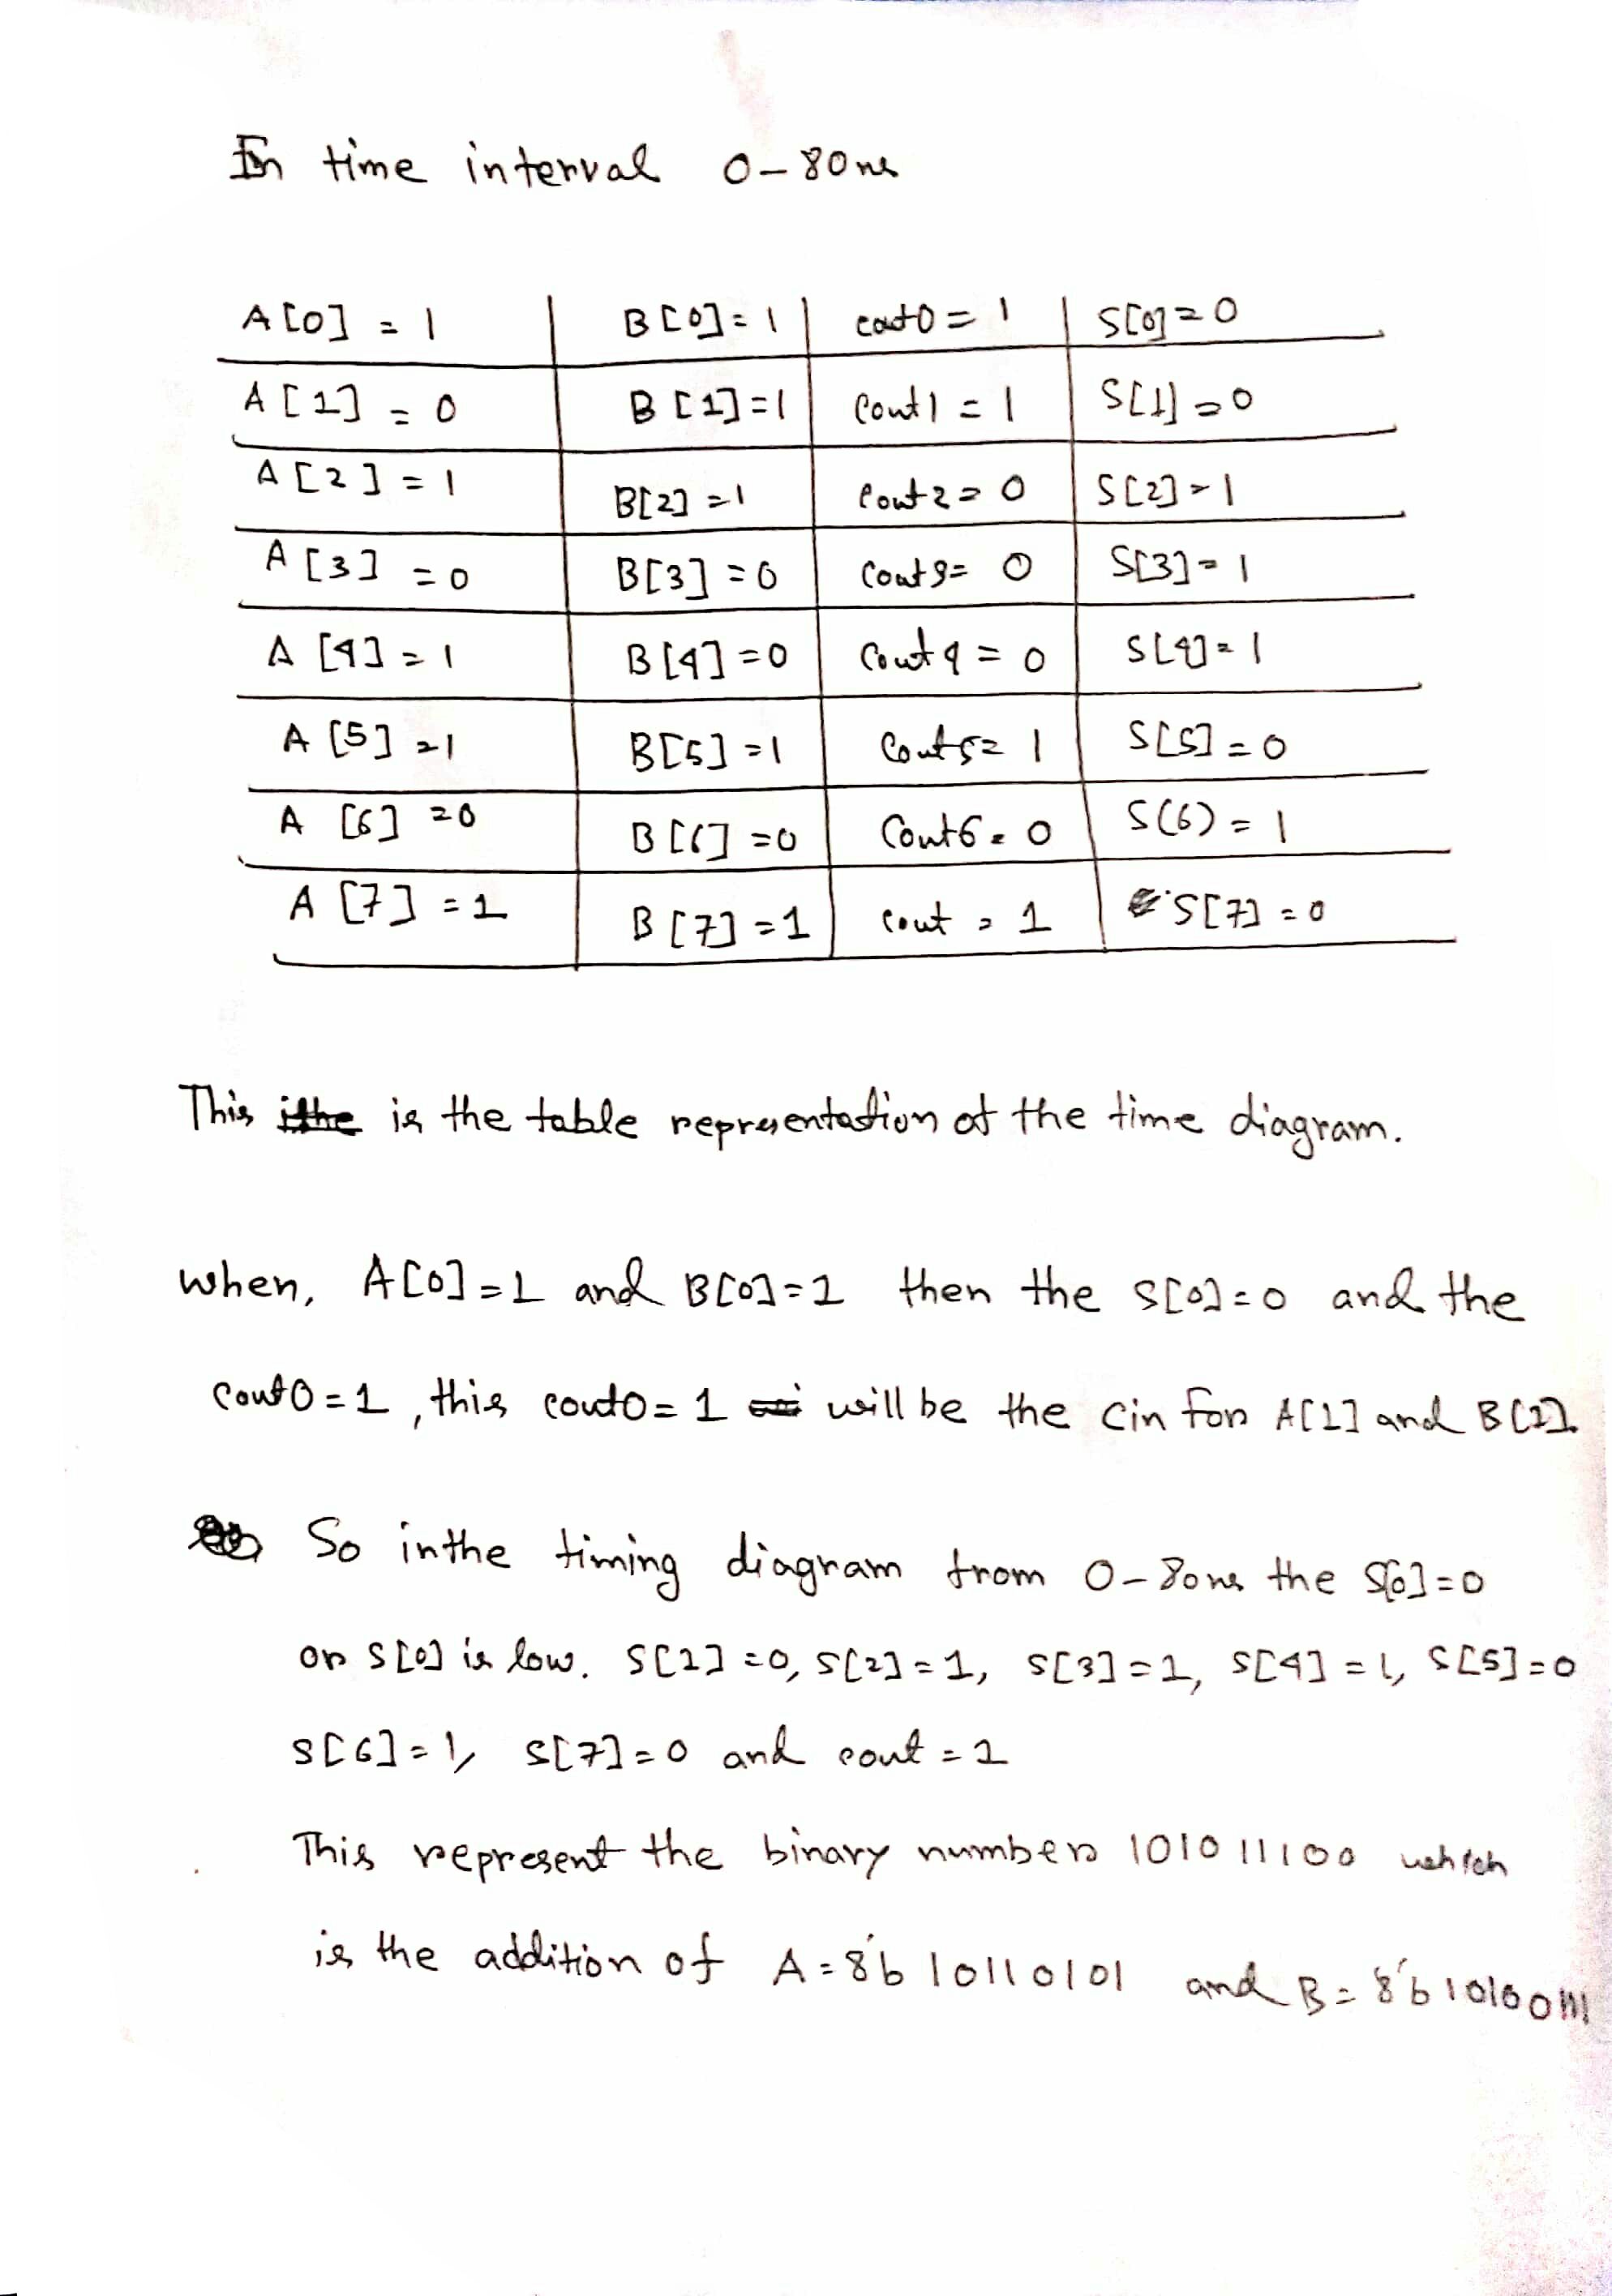 In time interval 0-80ns
A[0] = 1 B[0] = 1 cout0 = 1 S[0] = 0
A[1] = 0 B[1] = 1 Cout1 = 1 S[1] = 0
A[2] = 1 B[2] = 1 Cout2 = 0 S[2] = 1
A[3] = 0 B[3] = 0 Cout3 = 0 S[3] = 1
A[4] = 1 B[4] = 0 Cout4 = 0 S[4] = 1
A[5] = 1 B[5] = 1 Cout5 = 1 S[5] = 0
A[6] = 0 B[6] = 0 Cout6 = 0 S(6) = 1
A[7] = 1 B[7] = 1 cout = 1 S[7] = 0
This is the table representation of the time diagram.
when, A[0] = 1 and B[0] = 1 then the S[0] = 0 and the
cout0 = 1, this cout0 = 1 will be the cin for A[1] and B[1].
So in the timing diagram from 0-80ns the S[0] = 0
or S[0] is low. S[1] = 0, S[2] = 1, S[3] = 1, S[4] = 1, S[5] = 0
S[6] = 1, S[7] = 0 and cout = 1
This represent the binary number 101011100 which
is the addition of A = 8'b10110101 and B = 8'b10100111